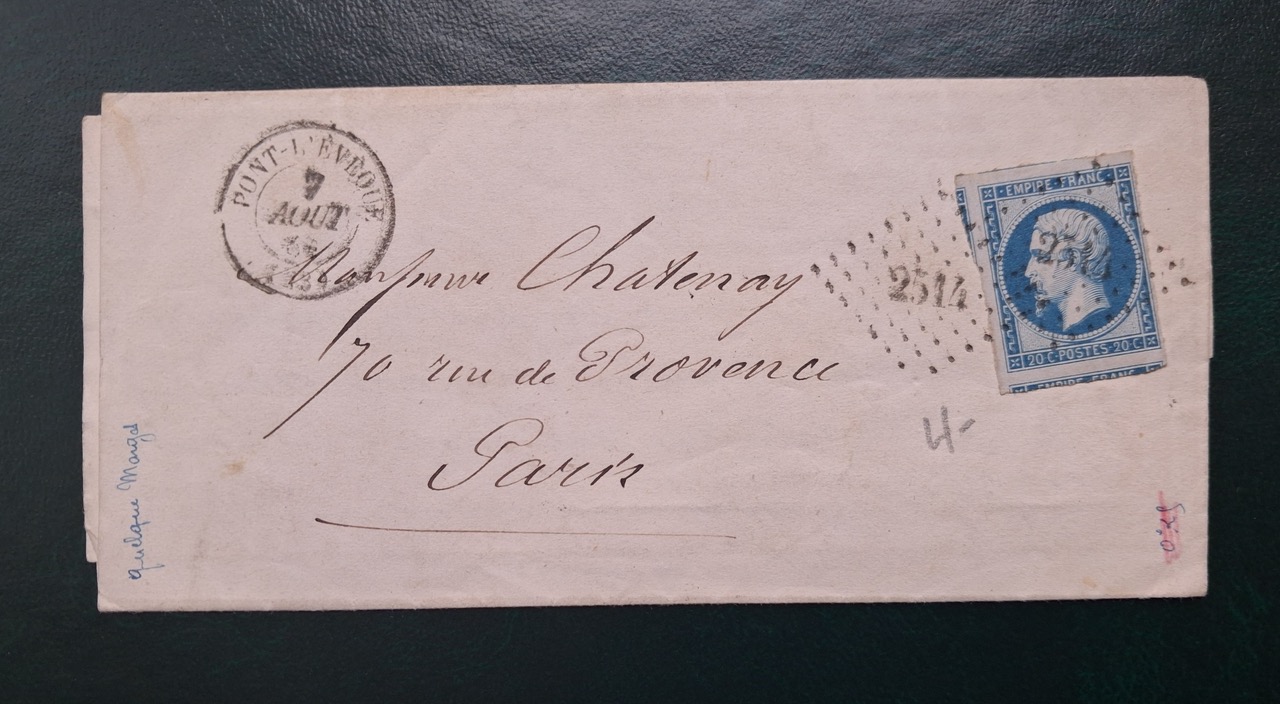 PONT-L'ÉVÊQUE
7
AOUT
Monsieur Chatenay
70 rue de Provence
Paris
2514
EMPIRE FRANC
2514
20·C·POSTES·20·C
EMPIRE FRANC
4-
quelque Marges